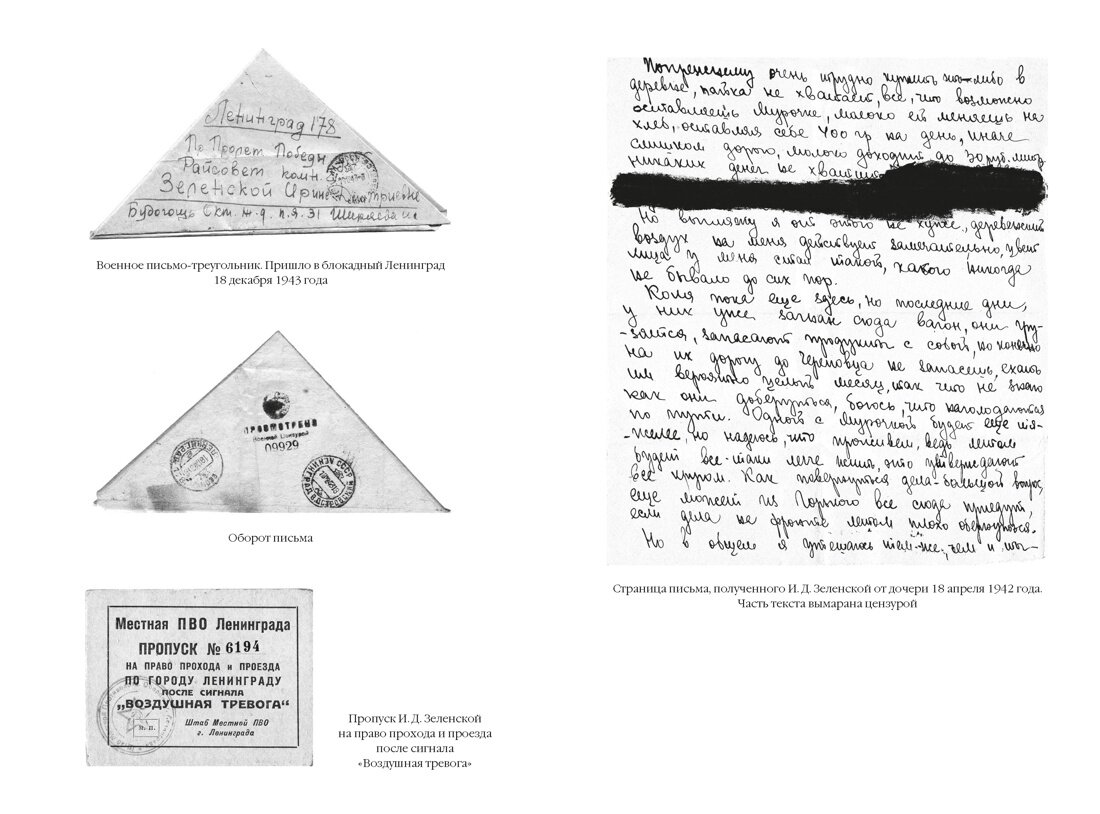 Ленинград 178
По Пролет. Победы
Райсовет комн.
Зеленской Ирине Дмитриевне
Будогощь Окт. ж-д. п.я. 31
Военное письмо-треугольник. Пришло в блокадный Ленинград
18 декабря 1943 года
ПРОСМОТРЕНО
Военной Цензурой
09929
Оборот письма
Местная ПВО Ленинграда
ПРОПУСК № 6194
НА ПРАВО ПРОХОДА и ПРОЕЗДА
ПО ГОРОДУ ЛЕНИНГРАДУ
ПОСЛЕ СИГНАЛА
„ВОЗДУШНАЯ ТРЕВОГА“
м. п.
Штаб Местной ПВО
г. Ленинграда
Пропуск И. Д. Зеленской
на право прохода и проезда
после сигнала
«Воздушная тревога»
Попрежнему очень трудно купить что-либо в
деревне, пайка не хватает, все, что возможно
оставляешь Мурочке, молоко ей меняешь на
хлеб, оставляя себе 400 гр на день, иначе
слишком дорого, молоко доходит до 30 руб.
никаких денег не хватит
Но выгляжу я от этого не хуже, деревенский
воздух на меня действует замечательно, цвет
лица у меня стал такой, какого никогда
не бывало до сих пор.
Коля пока еще здесь, но последние дни,
у них уже загнан сюда вагон, они гру-
зятся, запасают продукты с собой, но конечно
на их дорогу до Череповца не запасешь, ехать
им вероятно целый месяц, так что не знаю
как они доберутся, боюсь, что наголодаются
по пути. Одной с Мурочкой будет еще тя-
желее, но надеюсь, что проживем, ведь летом
будет все-таки легче жить, это утверждают
все кругом. Как повернутся дела - большой вопрос,
еще может из Горного все сюда приедут,
если дела на фронте летом плохо обернутся.
Но в общем я утешаюсь тем-же, чем и
Страница письма, полученного И. Д. Зеленской от дочери 18 апреля 1942 года.
Часть текста вымарана цензурой